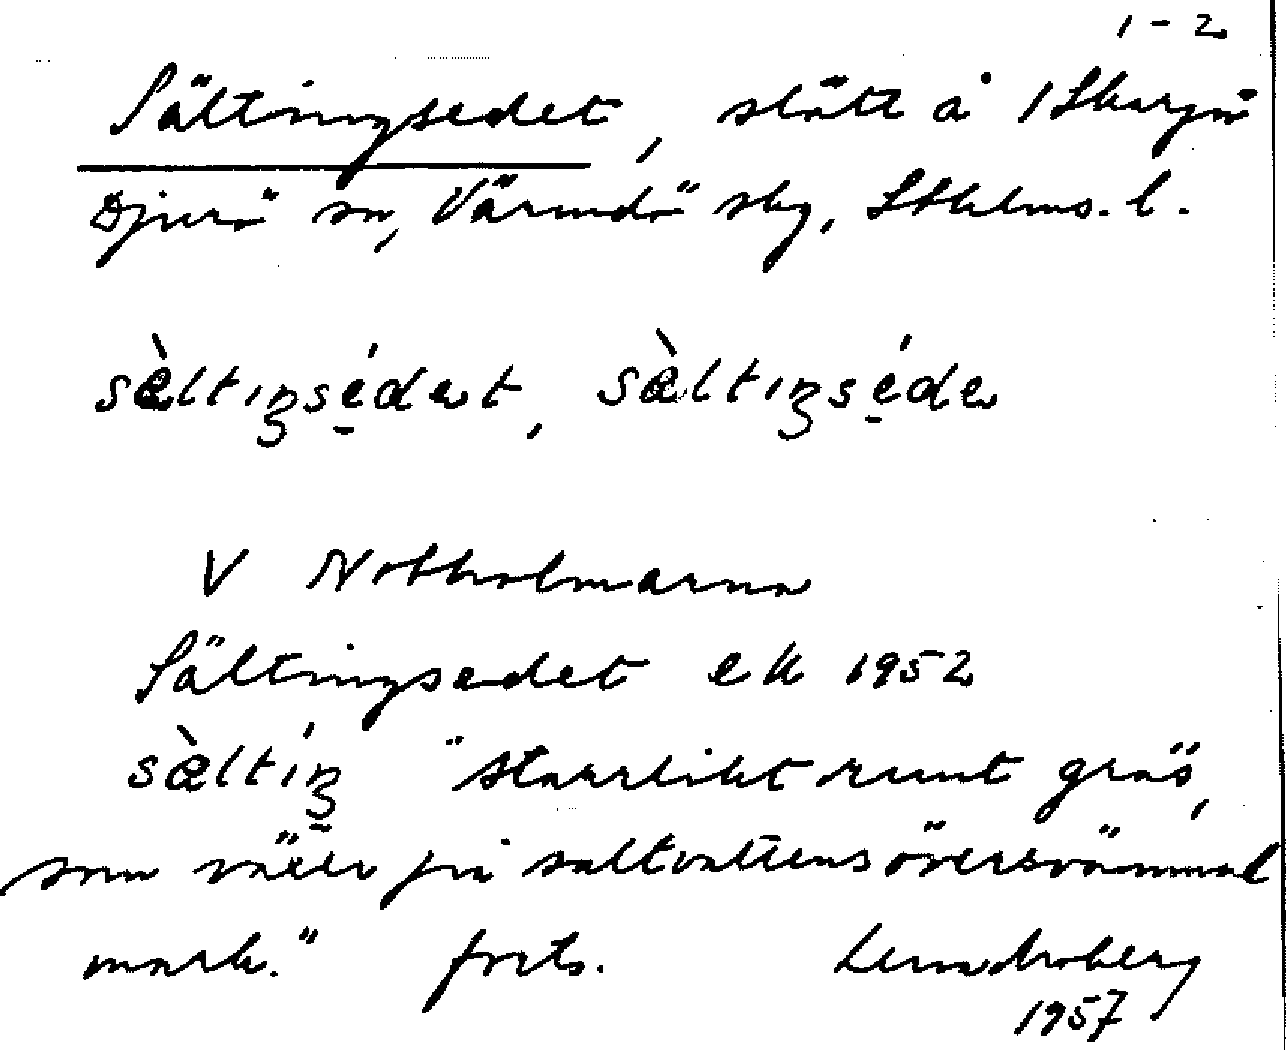 1-2
Sältingsedet, slått å /Skarpö
Djurö sn, Värmdö skg, Sthlms. l.
sæ̀ltiŋsédet, sæ̀ltiŋséde
V Notholmarna
Sältingsedet ek 1952
sæ̀ltíŋ "starrlikt runt gräs,
som växer på saltvattensöversvämmad
mark." forts.
1957